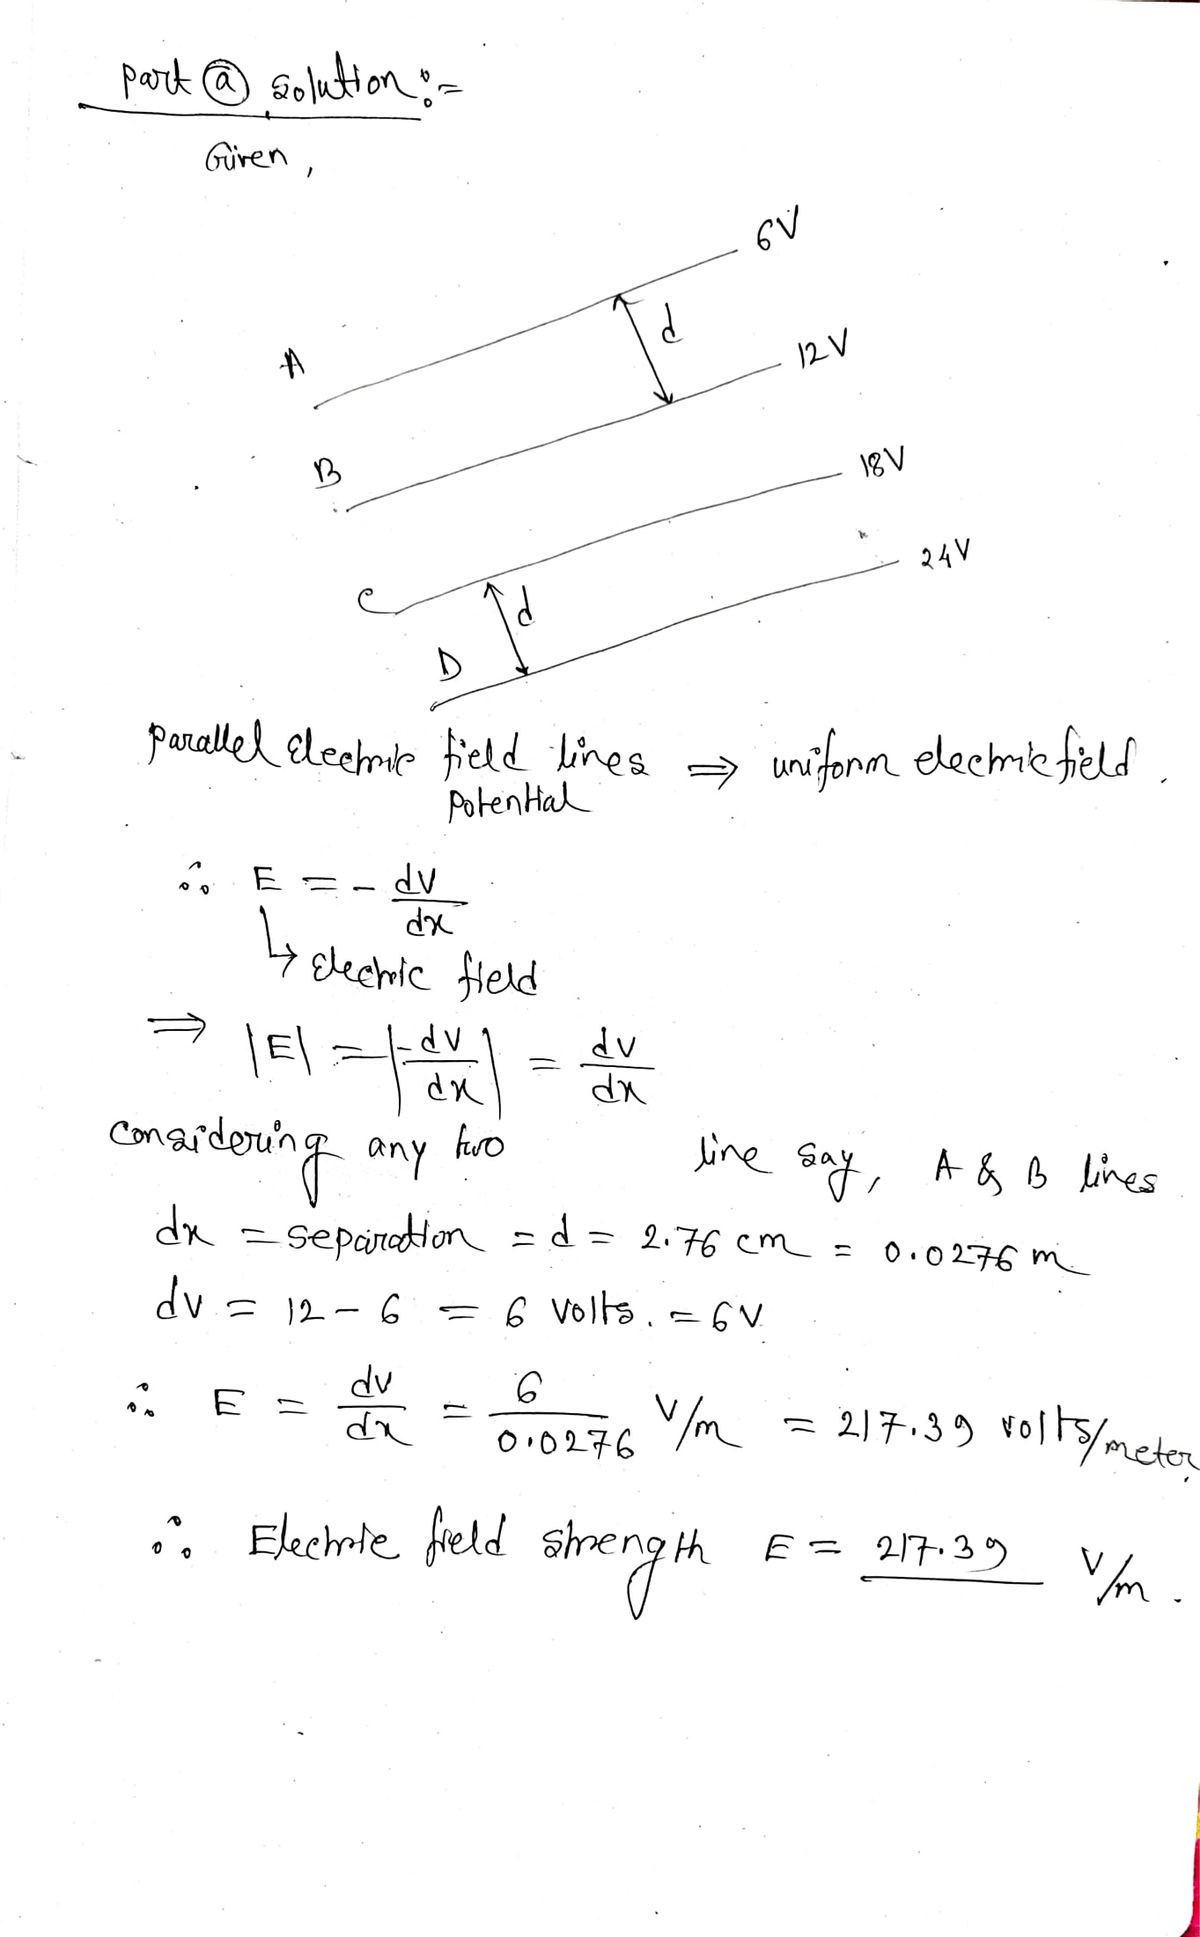 part ⓐ solution :=
Given,
6V
d
A
12V
B
18V
C
24V
d
D
parallel Electric field lines ⇒ uniform electric field.
potential
∴ E = - dV/dx
↳ Electric field
⇒ |E| = |-dV/dx| = dV/dx
considering any two line say, A & B lines
dx = separation = d = 2.76 cm = 0.0276 m
dv = 12 - 6 = 6 volts. = 6V
∴ E = dv/dx = 6/0.0276 V/m = 217.39 volts/meter
∴ Electric field strength E = 217.39 V/m.